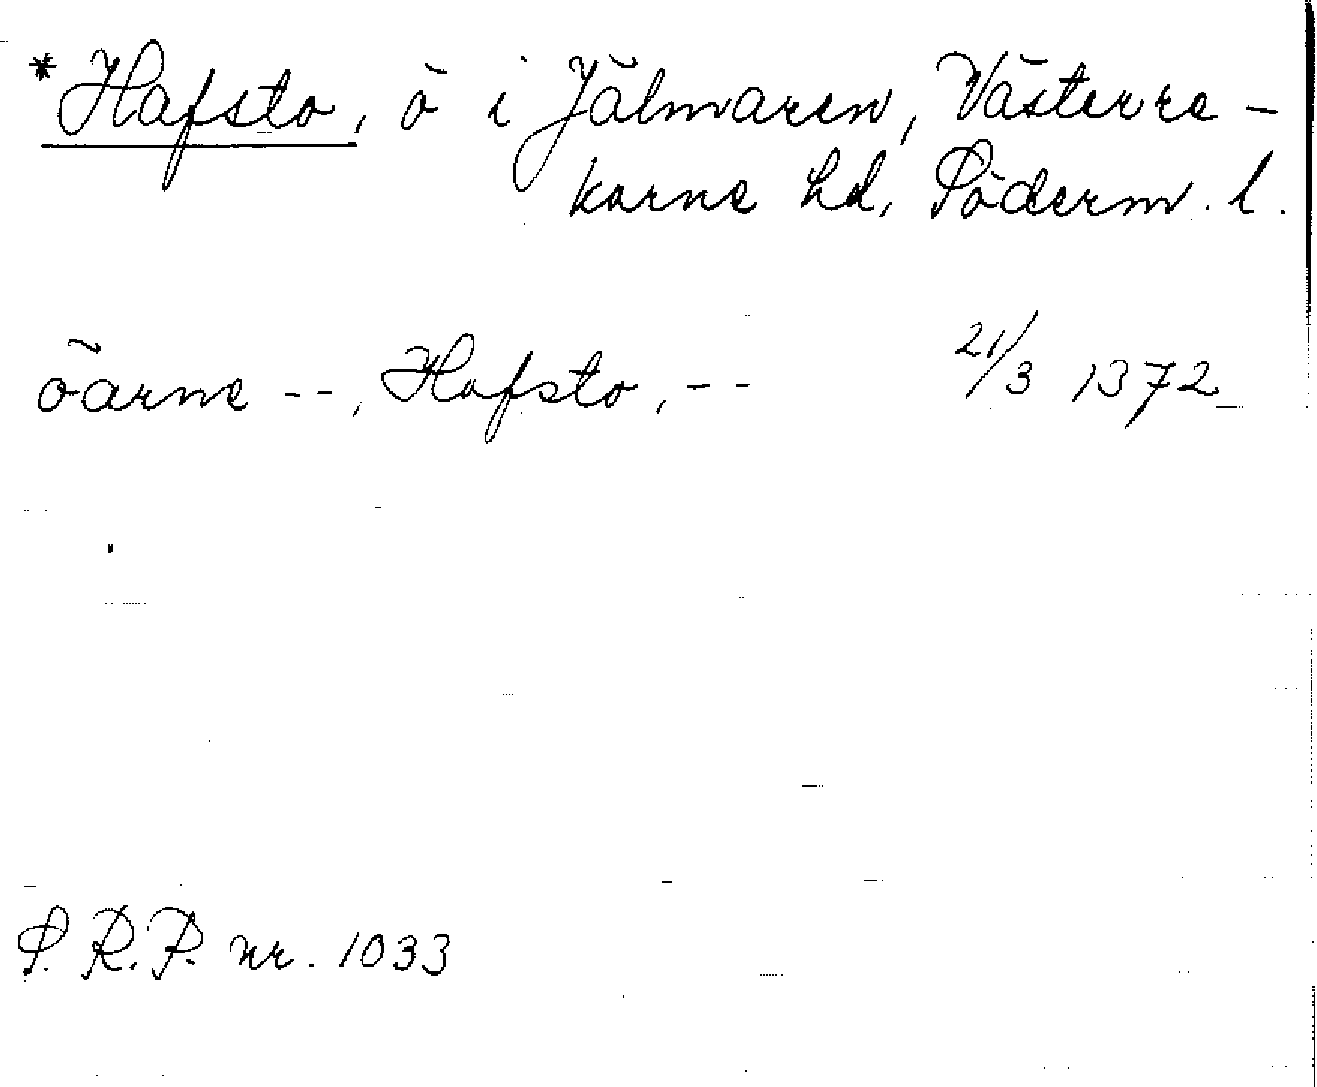 *Hafsto, ö i Jälmaren, Västerre-
karne hd, Söderm. l.
öarne --, Hafsto, -- 21/3 1372
S. R. P. nr. 1033